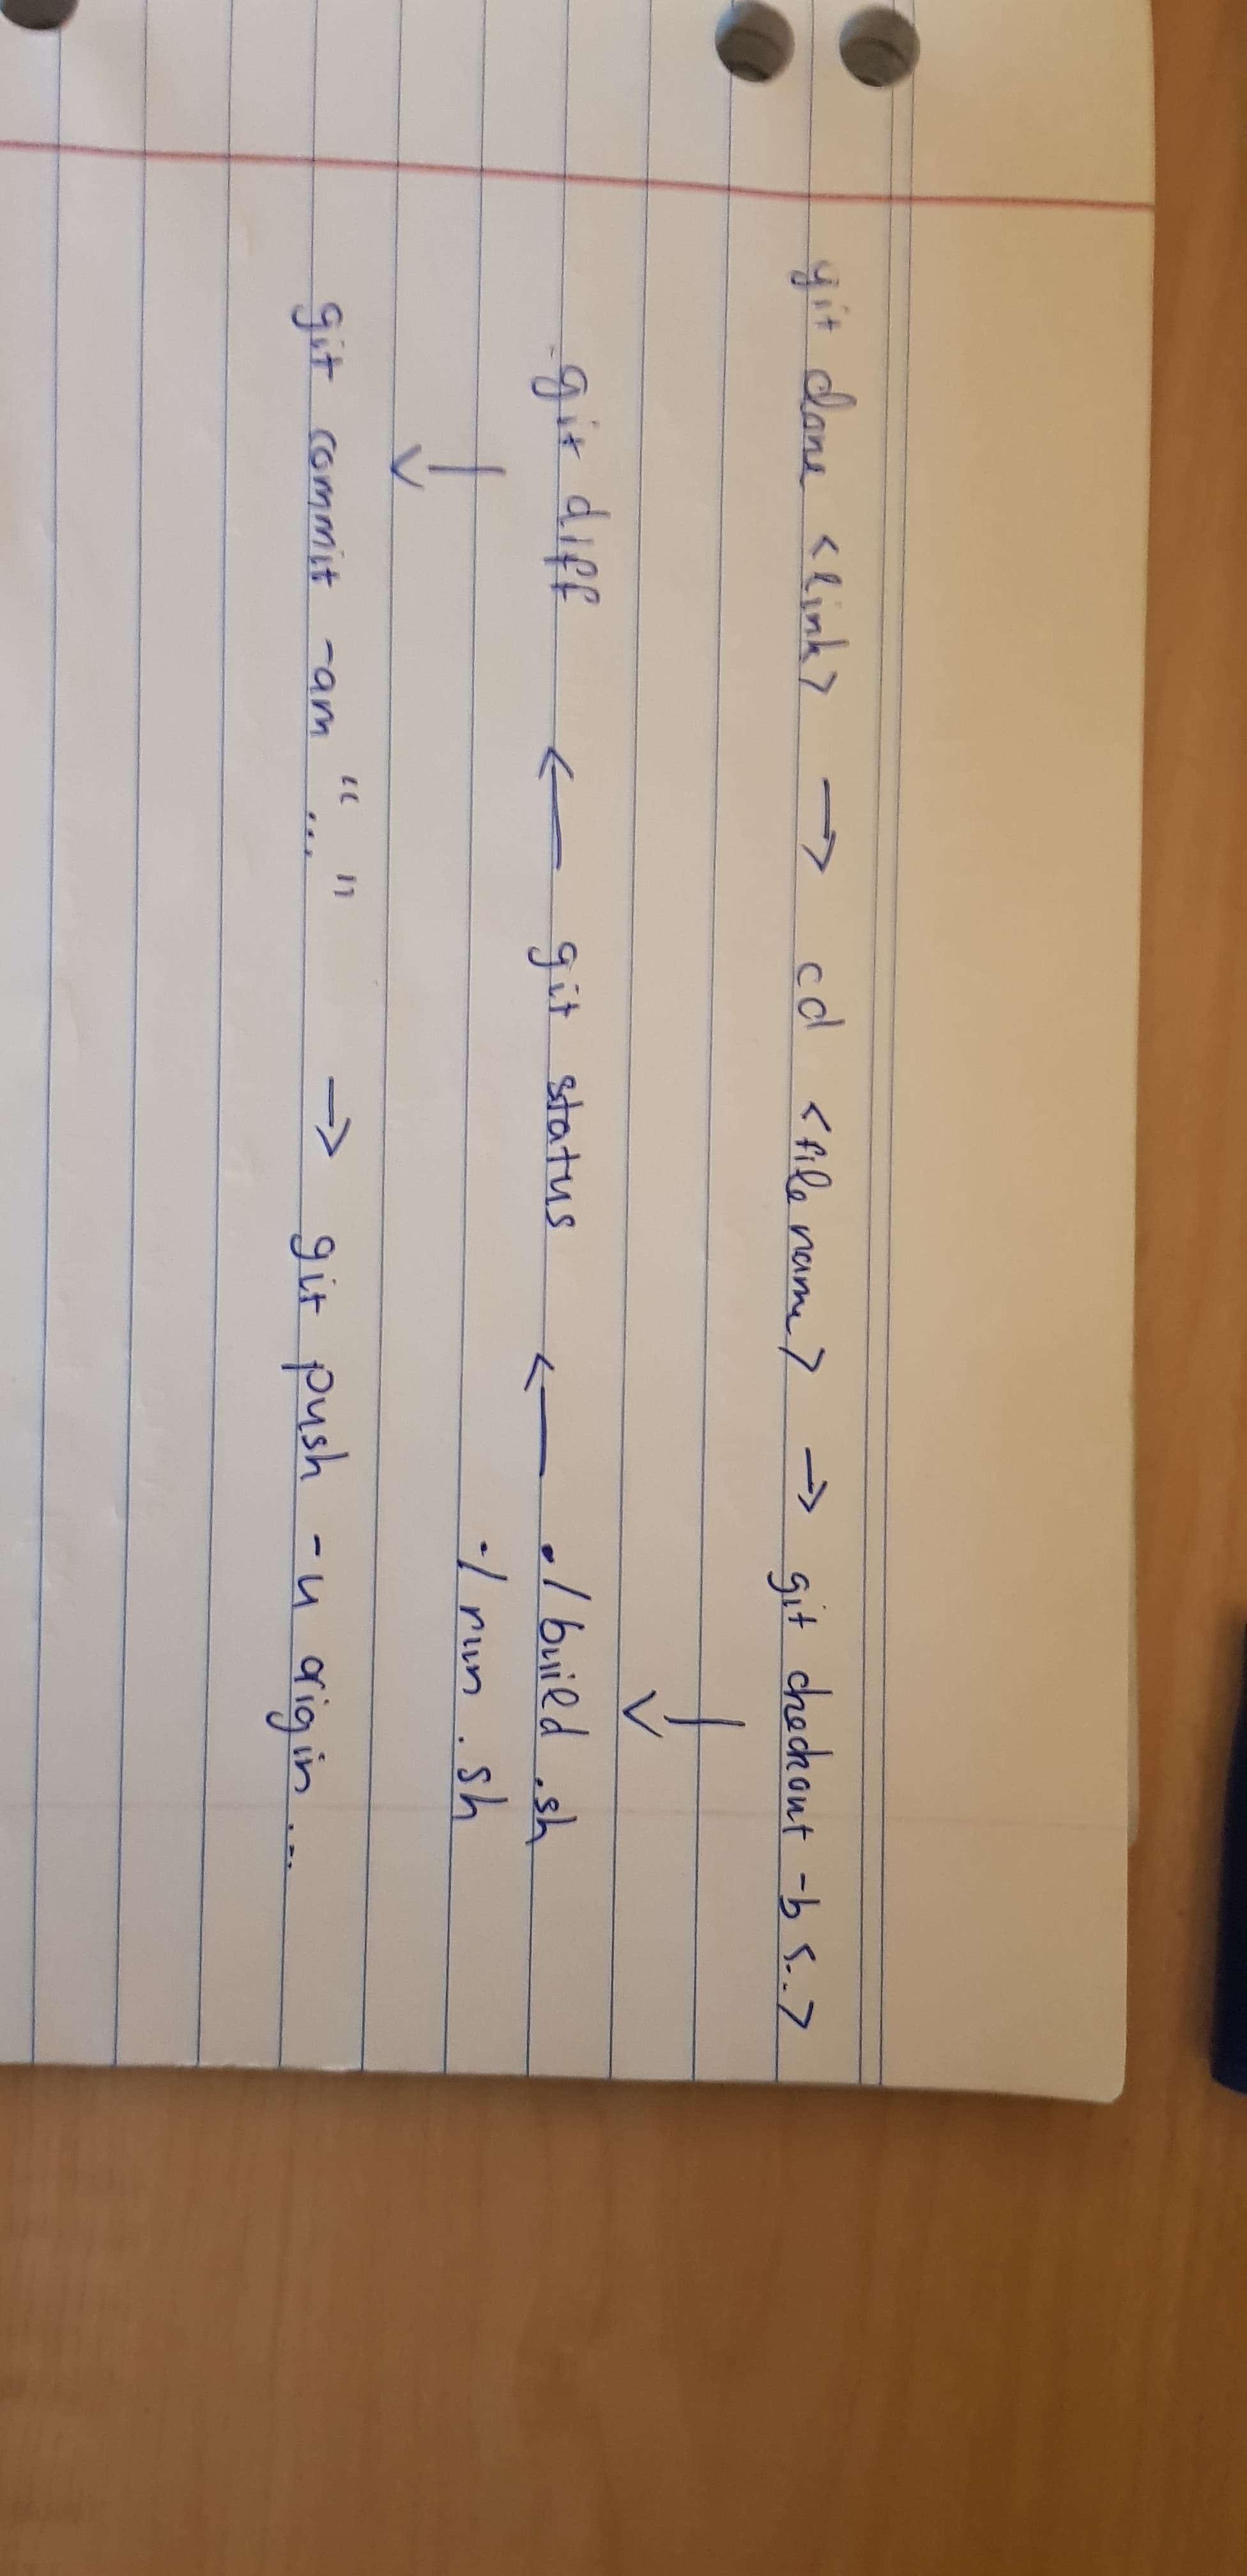 git clone <link> → cd <file name> → git checkout -b <..>
↓
git diff ← git status ← ./build.sh
./run.sh
↓
git commit -am "..." → git push -u origin ...